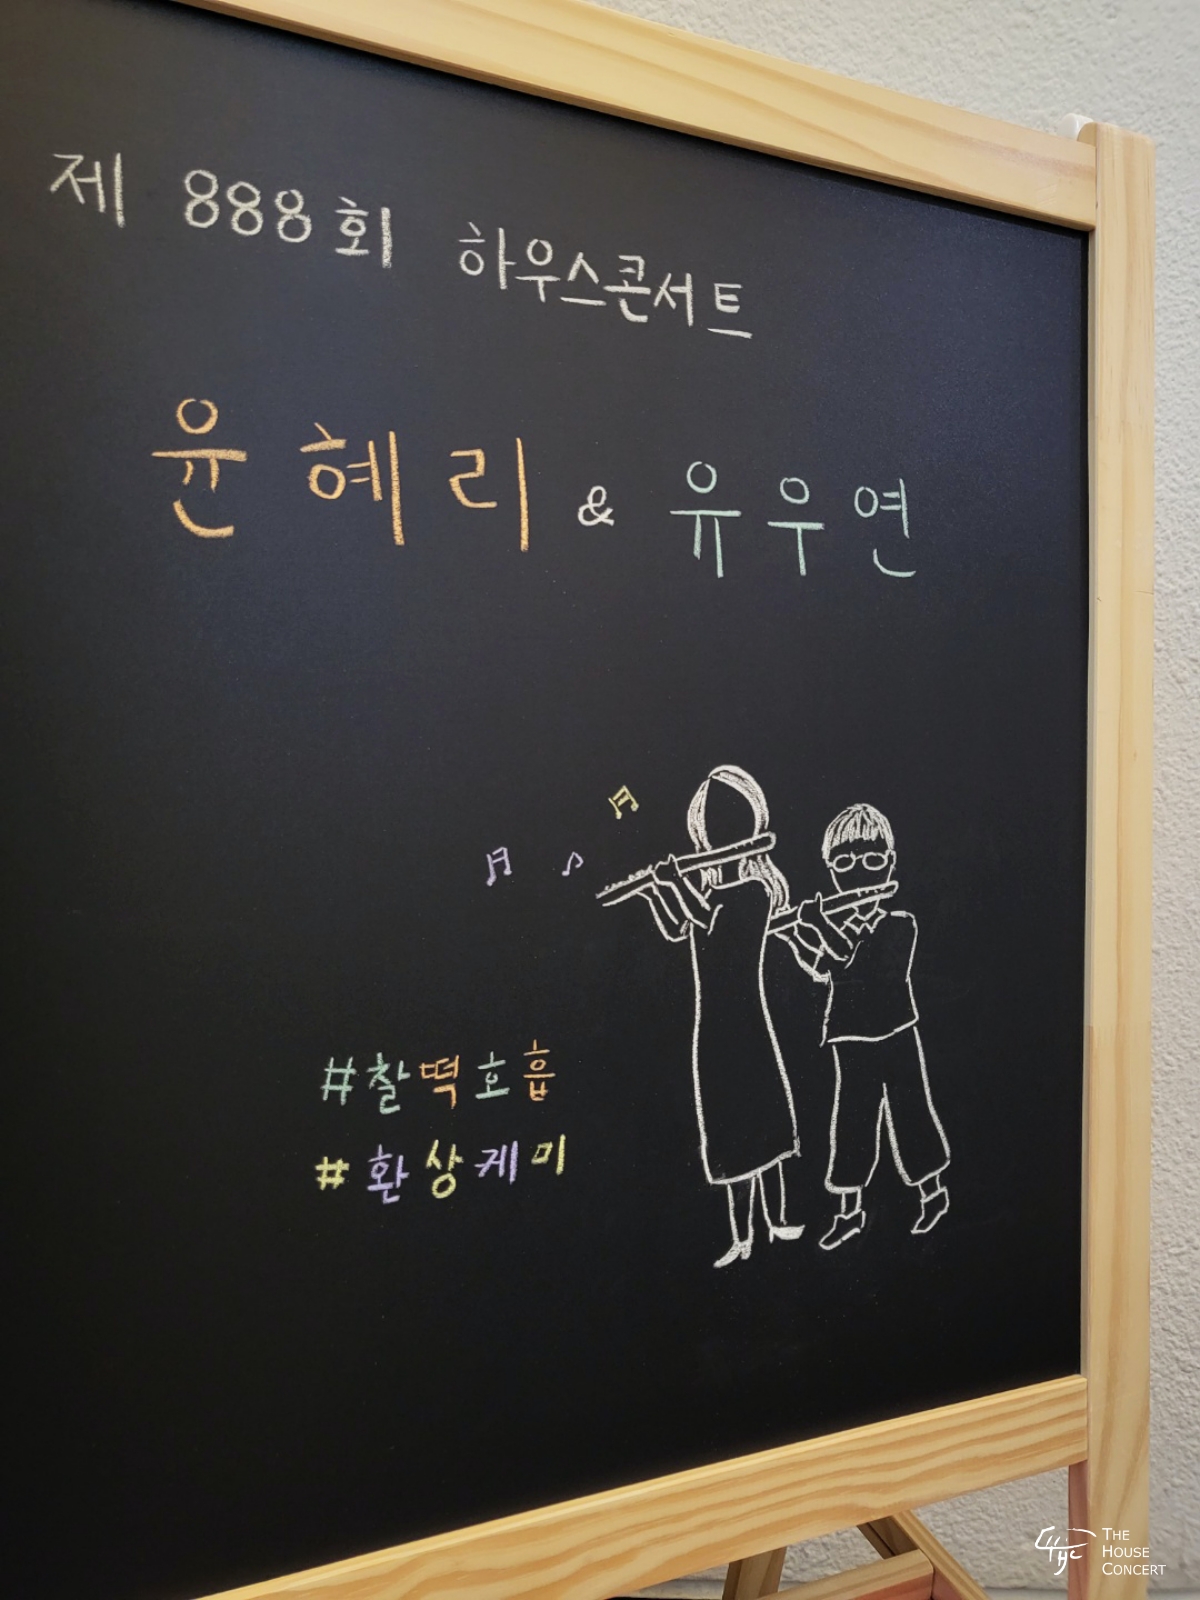 제 888회 하우스콘서트
윤혜리 & 유우연
#찰떡호흡
#환상케미
THE
HOUSE
CONCERT